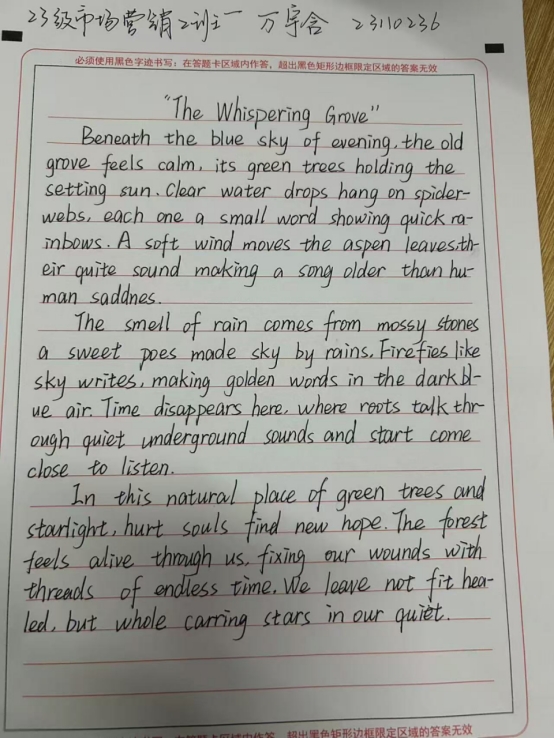 23级市场营销2班 万宇含 23110236
必须使用黑色字迹书写：在答题卡区域内作答，超出黑色矩形边框限定区域的答案无效
"The Whispering Grove"
Beneath the blue sky of evening, the old
grove feels calm, its green trees holding the
setting sun. Clear water drops hang on spider-
webs, each one a small word showing quick ra-
inbows. A soft wind moves the aspen leaves.th-
eir quite sound making a song older than hu-
man saddnes.
The smell of rain comes from mossy stones
a sweet poes made sky by rains. Firefies like
sky writes, making golden words in the dark bl-
ue air. Time disappears here, where roots talk thr-
ough quiet underground sounds and start come
close to listen.
In this natural place of green trees and
starlight, hurt souls find new hope. The forest
feels alive through us, fixing our wounds with
threads of endless time. We leave not fit hea-
led, but whole carring stars in our quiet.
答题卡区域内作答，超出黑色矩形边框限定区域的答案无效